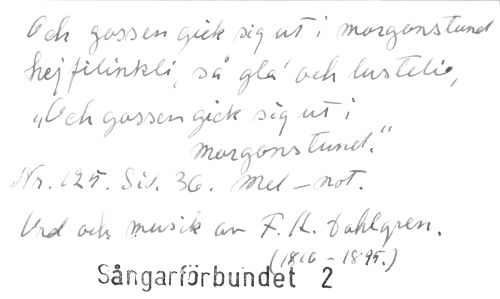 Och gossen gick sig ut i morgonstund
hej filinkli, så gla' och lustelie,
"Och gossen gick sig ut i
morgonstund."
Nr. 125. Sid. 36. Mel-not.
Ord och musik av F. A. Dahlgren.
(1816-1895.)
Sångarförbundet 2